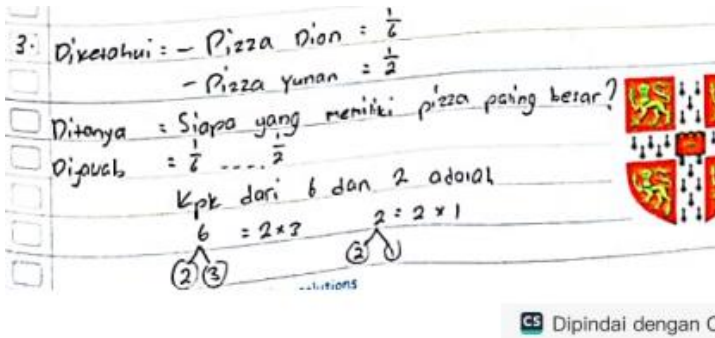 3. Diketahui : - Pizza Dion = 1/6
- Pizza Yunan = 1/2
Ditanya : Siapa yang memiliki pizza paling besar?
Dijawab : 1/6 .... 1/2
Kpk dari 6 dan 2 adalah
6 = 2 x 3 2 = 2 x 1
2 3 2 1
CS Dipindai dengan